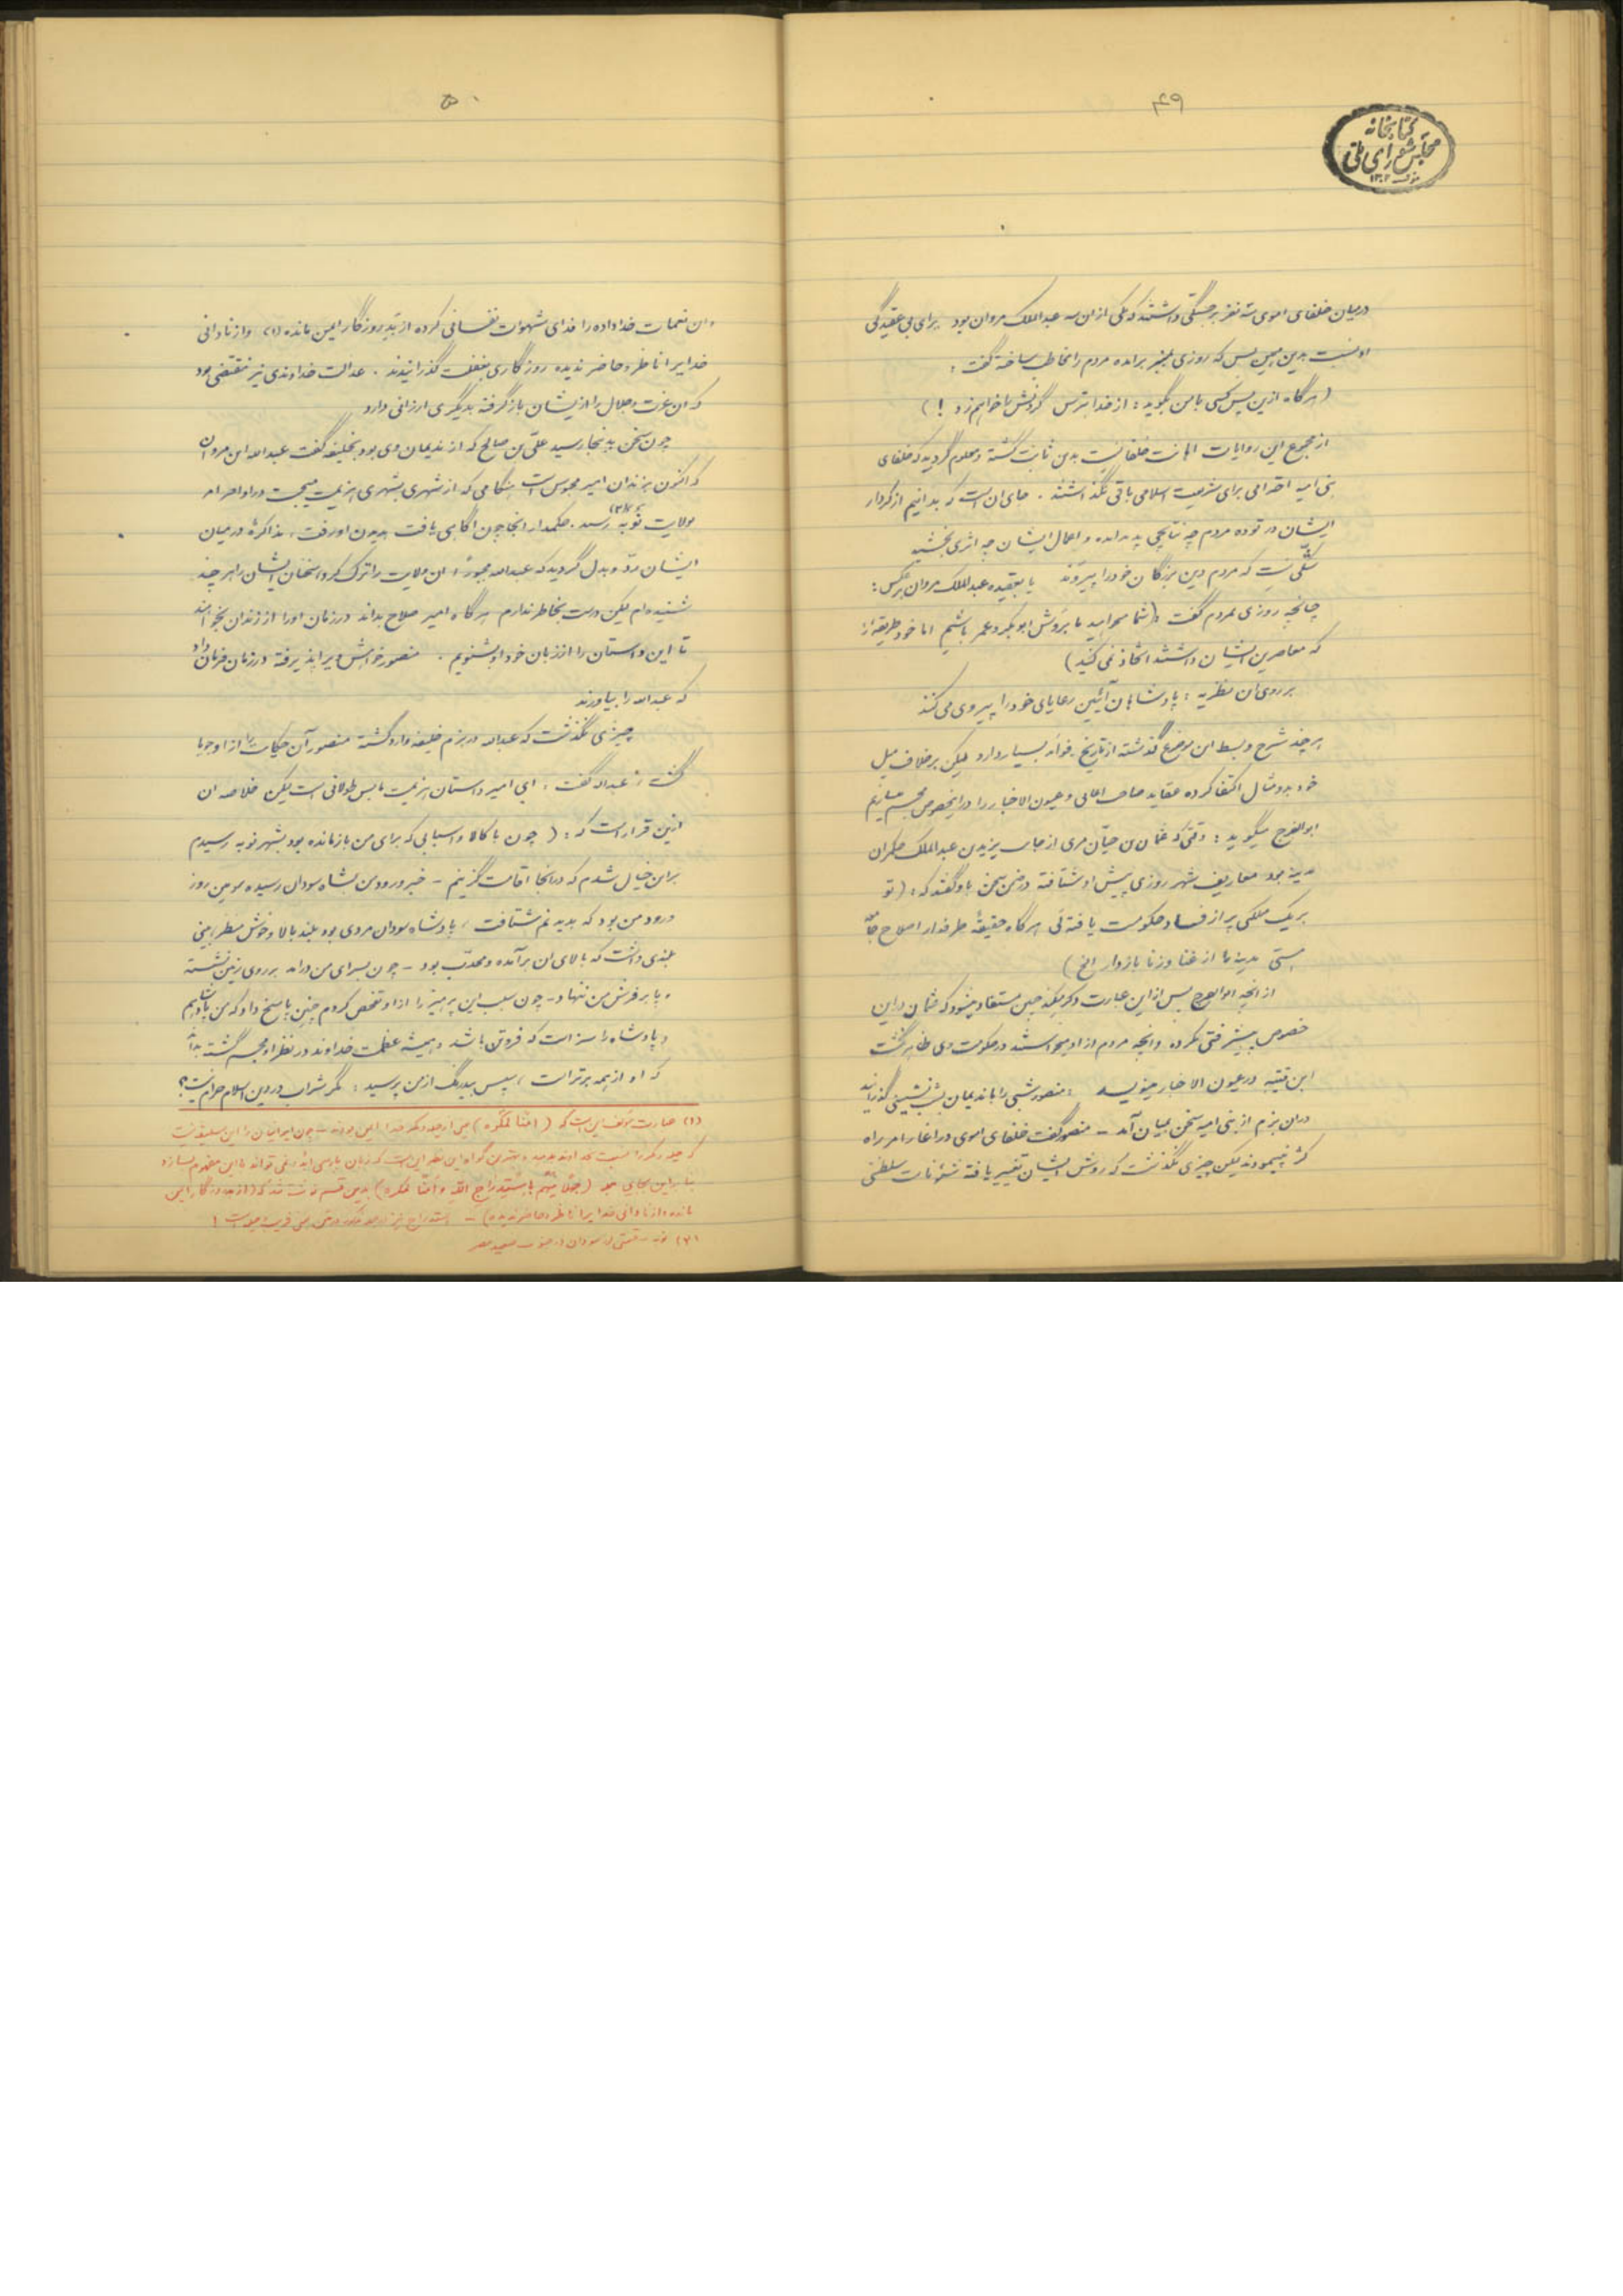 ۴۹
کتابخانه
مجلس شورای ملی
۱۳۰۲
درمیان خلفای اموی سه نفر برجستگی داشتند که یکی ازان سه عبدالملک مروان بود برای بی عقیدگی
او نسبت بدین همین بس که روزی بمنبر برآمده مردم را مخاطب ساخته گفت :
(هرگاه ازین پس کسی بامن بگوید : از خدا بترس گردنش را خواهم زد !)
از مجموع این روایات اهانت خلفا نسبت بدین ثابت گشته و معلوم گردید که خلفای
بنی امیه احترامی برای شریعت اسلامی باقی نگذاشتند . جای ان است که بدانیم ازکردار
ایشان در توده مردم چه نتایجی پدید امده و اعمال ایشان چه اثری بخشید
شکی نیست که مردم دین بزرگان خود را پیروند یا بعقیده عبدالملک مروان برعکس :
چنانچه روزی بمردم گفت (شما میخواهید ما بروش ابوبکر و عمر باشیم اما خود طریقه‌ای را
که معاصرین ایشان داشتند اتخاذ نمی کنید)
بر روی ان نظریه : پادشاهان آئین رعایای خود را پیروی می کنند
هرچند شرح و بسط این موضوع گذشته از تاریخ فوائد بسیار دارد لیکن برخلاف میل
خود بدو مثال اکتفا کرده عقاید صاحب اغانی و عیون الاخبار را دراینخصوص مجسم میسازیم
ابوالفرج میگوید : وقتی که عثمان بن حیان مری از جانب یزید بن عبدالملک حکمران
مدینه بود معاریف شهر روزی پیش او شتافته در ضمن سخن باو گفتند که : (تو
بر یک ملکی پر از فساد حکومت یافته‌ئی هرگاه حقیقةً طرفدار اصلاح جامعه
هستی مدینه را از غنا و زنا بازدار الخ)
از انچه ابوالفرج پس از این عبارت ذکر میکند چنین مستفاد میشود که عثمان در این
خصوص پیشرفتی نکرده و انچه مردم از او میخواستند در حکومت وی ظاهر نگشت
ابن قتیبه در عیون الاخبار مینویسد : منصور شبی را با ندیمان بشب نشینی گذرانید
دران بزم از بنی امیه سخن بمیان آمد - منصور گفت خلفای اموی در اغاز امر راه
کژ نپیمودند لیکن چیزی نگذشت که روش ایشان تغییر یافته شئونات سلطنتی
۵۰
وان نعمات خداداده را فدای شهوات نفسانی کرده از بد روزگار ایمن مانده (۱) و از نادانی
خدایرا ناظر و حاضر ندیده روزگاری بغفلت گذرانیدند . عدالت خداوندی نیز مقتضی بود
که ان عزت و جلال را از ایشان بازگرفته بدیگری ارزانی دارد
چون سخن بدینجا رسید علی بن صالح که از ندیمان وی بود بخلیفه گفت عبدالله ابن مروان
که اکنون بزندان امیر محبوس است هنگامی که از شهری بشهری هزیمت میجست در اواخر امر
بولایت نوبه (۲) رسید . حکمدار انجا چون اگاهی یافت بدیدن او رفت ، مذاکره در میان
ایشان رد و بدل گردید که عبدالله مجبوراً ان ولایت را ترک کرد سخنان ایشان را هرچند
شنیده‌ام لیکن درست بخاطر ندارم هرگاه امیر صلاح بداند درزمان اورا از زندان بخواهند
تا این داستان را از زبان خود او بشنویم . منصور خواهش ویرا پذیرفته درزمان فرمان داد
که عبدالله را بیاورند
چیزی نگذشت که عبدالله در بزم خلیفه وارد گشته منصور آن حکایت را از او جویا
گشت ، عبدالله گفت : ای امیر داستان هزیمت ما بس طولانی است لیکن خلاصه ان
ازین قرار است که : (چون با کالا و اسبابی که برای من بازمانده بود بشهر نوبه رسیدم
بر این خیال شدم که درانجا اقامت گزینم - خبر ورود من بشاه سودان رسیده سومین روز
ورود من بود که بدیدنم شتافت ، پادشاه سودان مردی بود بلند بالا و خوش منظر ، بینی
بلندی داشت که بالای ان برآمده و محدب بود - چون بسرای من درامد بر روی زمین نشسته
و پا بر فرش من ننهاد - چون سبب این پرهیز را از او تفحص کردم چنین پاسخ داد که من پادشاهم
و پادشاه را سزا است که فروتن باشد و همیشه عظمت خداوند در نظر او مجسم گشته بداند
که او از همه برتر است ، سپس بیدرنگ ازمن پرسید : مگر شراب در دین اسلام حرام نیست ؟
(۱) عبارت مؤلف این است که (امناً لمکره) یعنی از حیله و مکر خدا ایمن بودند - چون ایرانیان را این سلیقه نیست
که حیله و مکر را نسبت بخداوند بدهند و بهترین گواه این نظر این است که زبان پارسی ابداً نمی تواند با این مفهوم بسازد
بنابراین بجای جمله (جهلاً منهم باستدراج الله و امناً لمکره) بدین قسم نوشته شد که (از بد روزگار ایمن
مانده و از نادانی خدایرا ناظر و حاضر ندیده) -
(۲) نوبه - قسمتی از سودان در جنوب صعید مصر